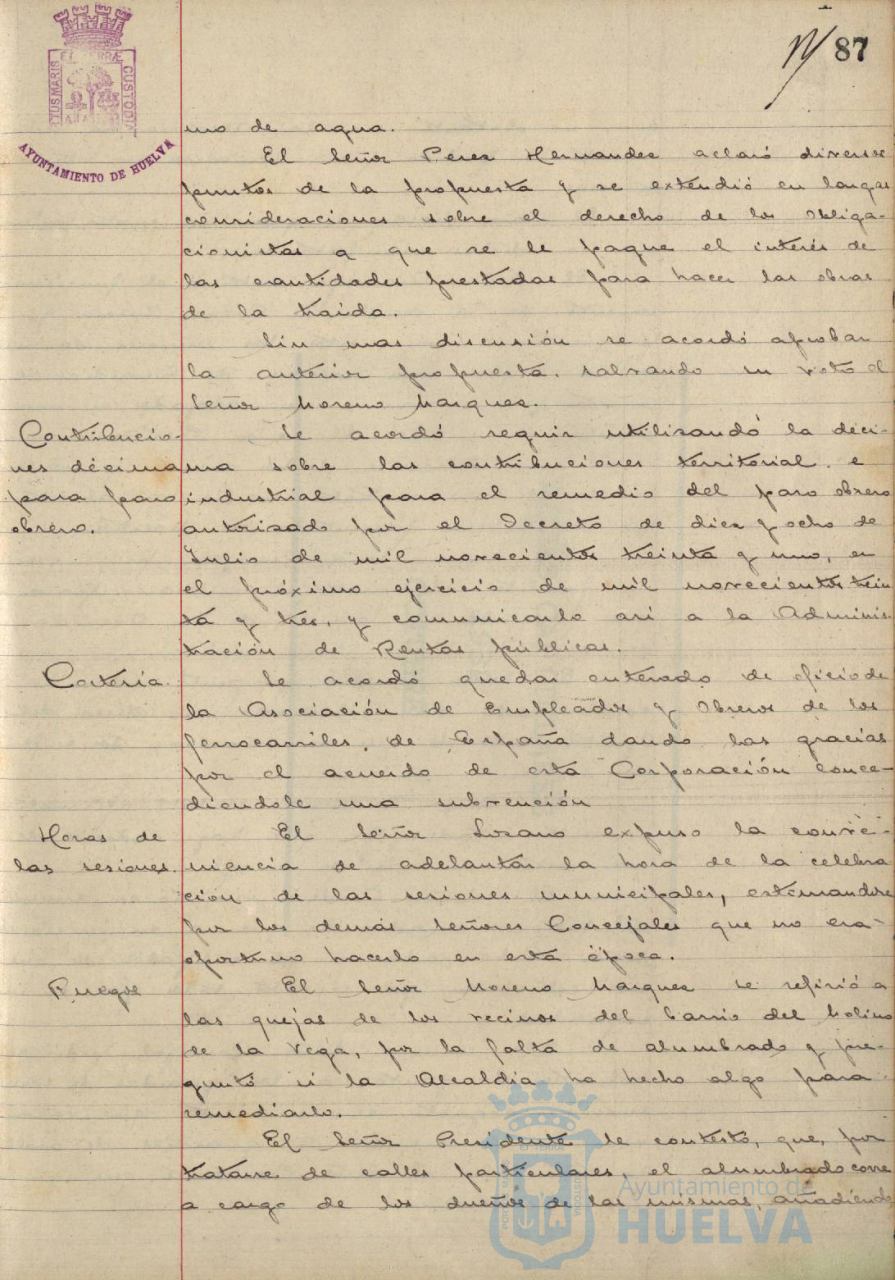 87
PORTUS MARIS ET TERRÆ CUSTODIA
AYUNTAMIENTO DE HUELVA
mo de agua.
El Señor Perez Hernandez aclaró diversos
puntos de la propuesta y se extendió en largas
consideraciones sobre el derecho de los Obliga-
cionistas a que se le pague el interés de
las cantidades prestadas para hacer las obras
de la traida.
Sin mas discusión se acordó aprobar
la anterior propuesta. salvando su voto el
Señor Moreno Marquez.
Contribucio-
nes décima
para paro
obrero.
Se acordó seguir utilizando la déci-
ma sobre las contribuciones territorial e
industrial para el remedio del paro obrero
autorizado por el Decreto de diez y ocho de
Julio de mil novecientos treinta y uno, en
el próximo ejercicio de mil novecientos trein
ta y tres, y comunicarlo asi a la Adminis
tración de Rentas públicas.
Cortesía.
Se acordó quedar enterado de oficio de
la Asociación de Empleados y Obreros de los
ferrocarriles, de España dando las gracias
por el acuerdo de esta Corporación conce-
diendole una subvención
Horas de
las sesiones.
El Señor Lozano expuso la conve-
niencia de adelantar la hora de la celebra
ción de las sesiones municipales, estimandose
por los demás Señores Concejales que no era
oportuno hacerlo en esta época.
Ruegos
El Señor Moreno Marquez se refirió a
las quejas de los vecinos del barrio del Molino
de la Vega, por la falta de alumbrado y pre-
guntó si la Alcaldía ha hecho algo para
remediarlo.
El Señor Presidente le contestó, que, por
tratarse de calles particulares, el alumbrado corre
a cargo de los dueños de las mismas, añadiendo
Ayuntamiento de
HUELVA